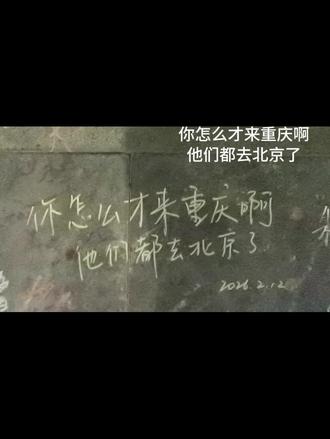 你怎么才来重庆啊
他们都去北京了
你怎么才来重庆啊
他们都去北京了
2026.2.12